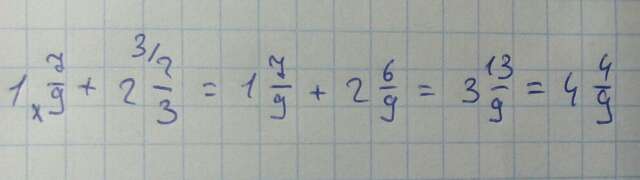 1 7/9 + 2 3/2/3 = 1 7/9 + 2 6/9 = 3 13/9 = 4 4/9